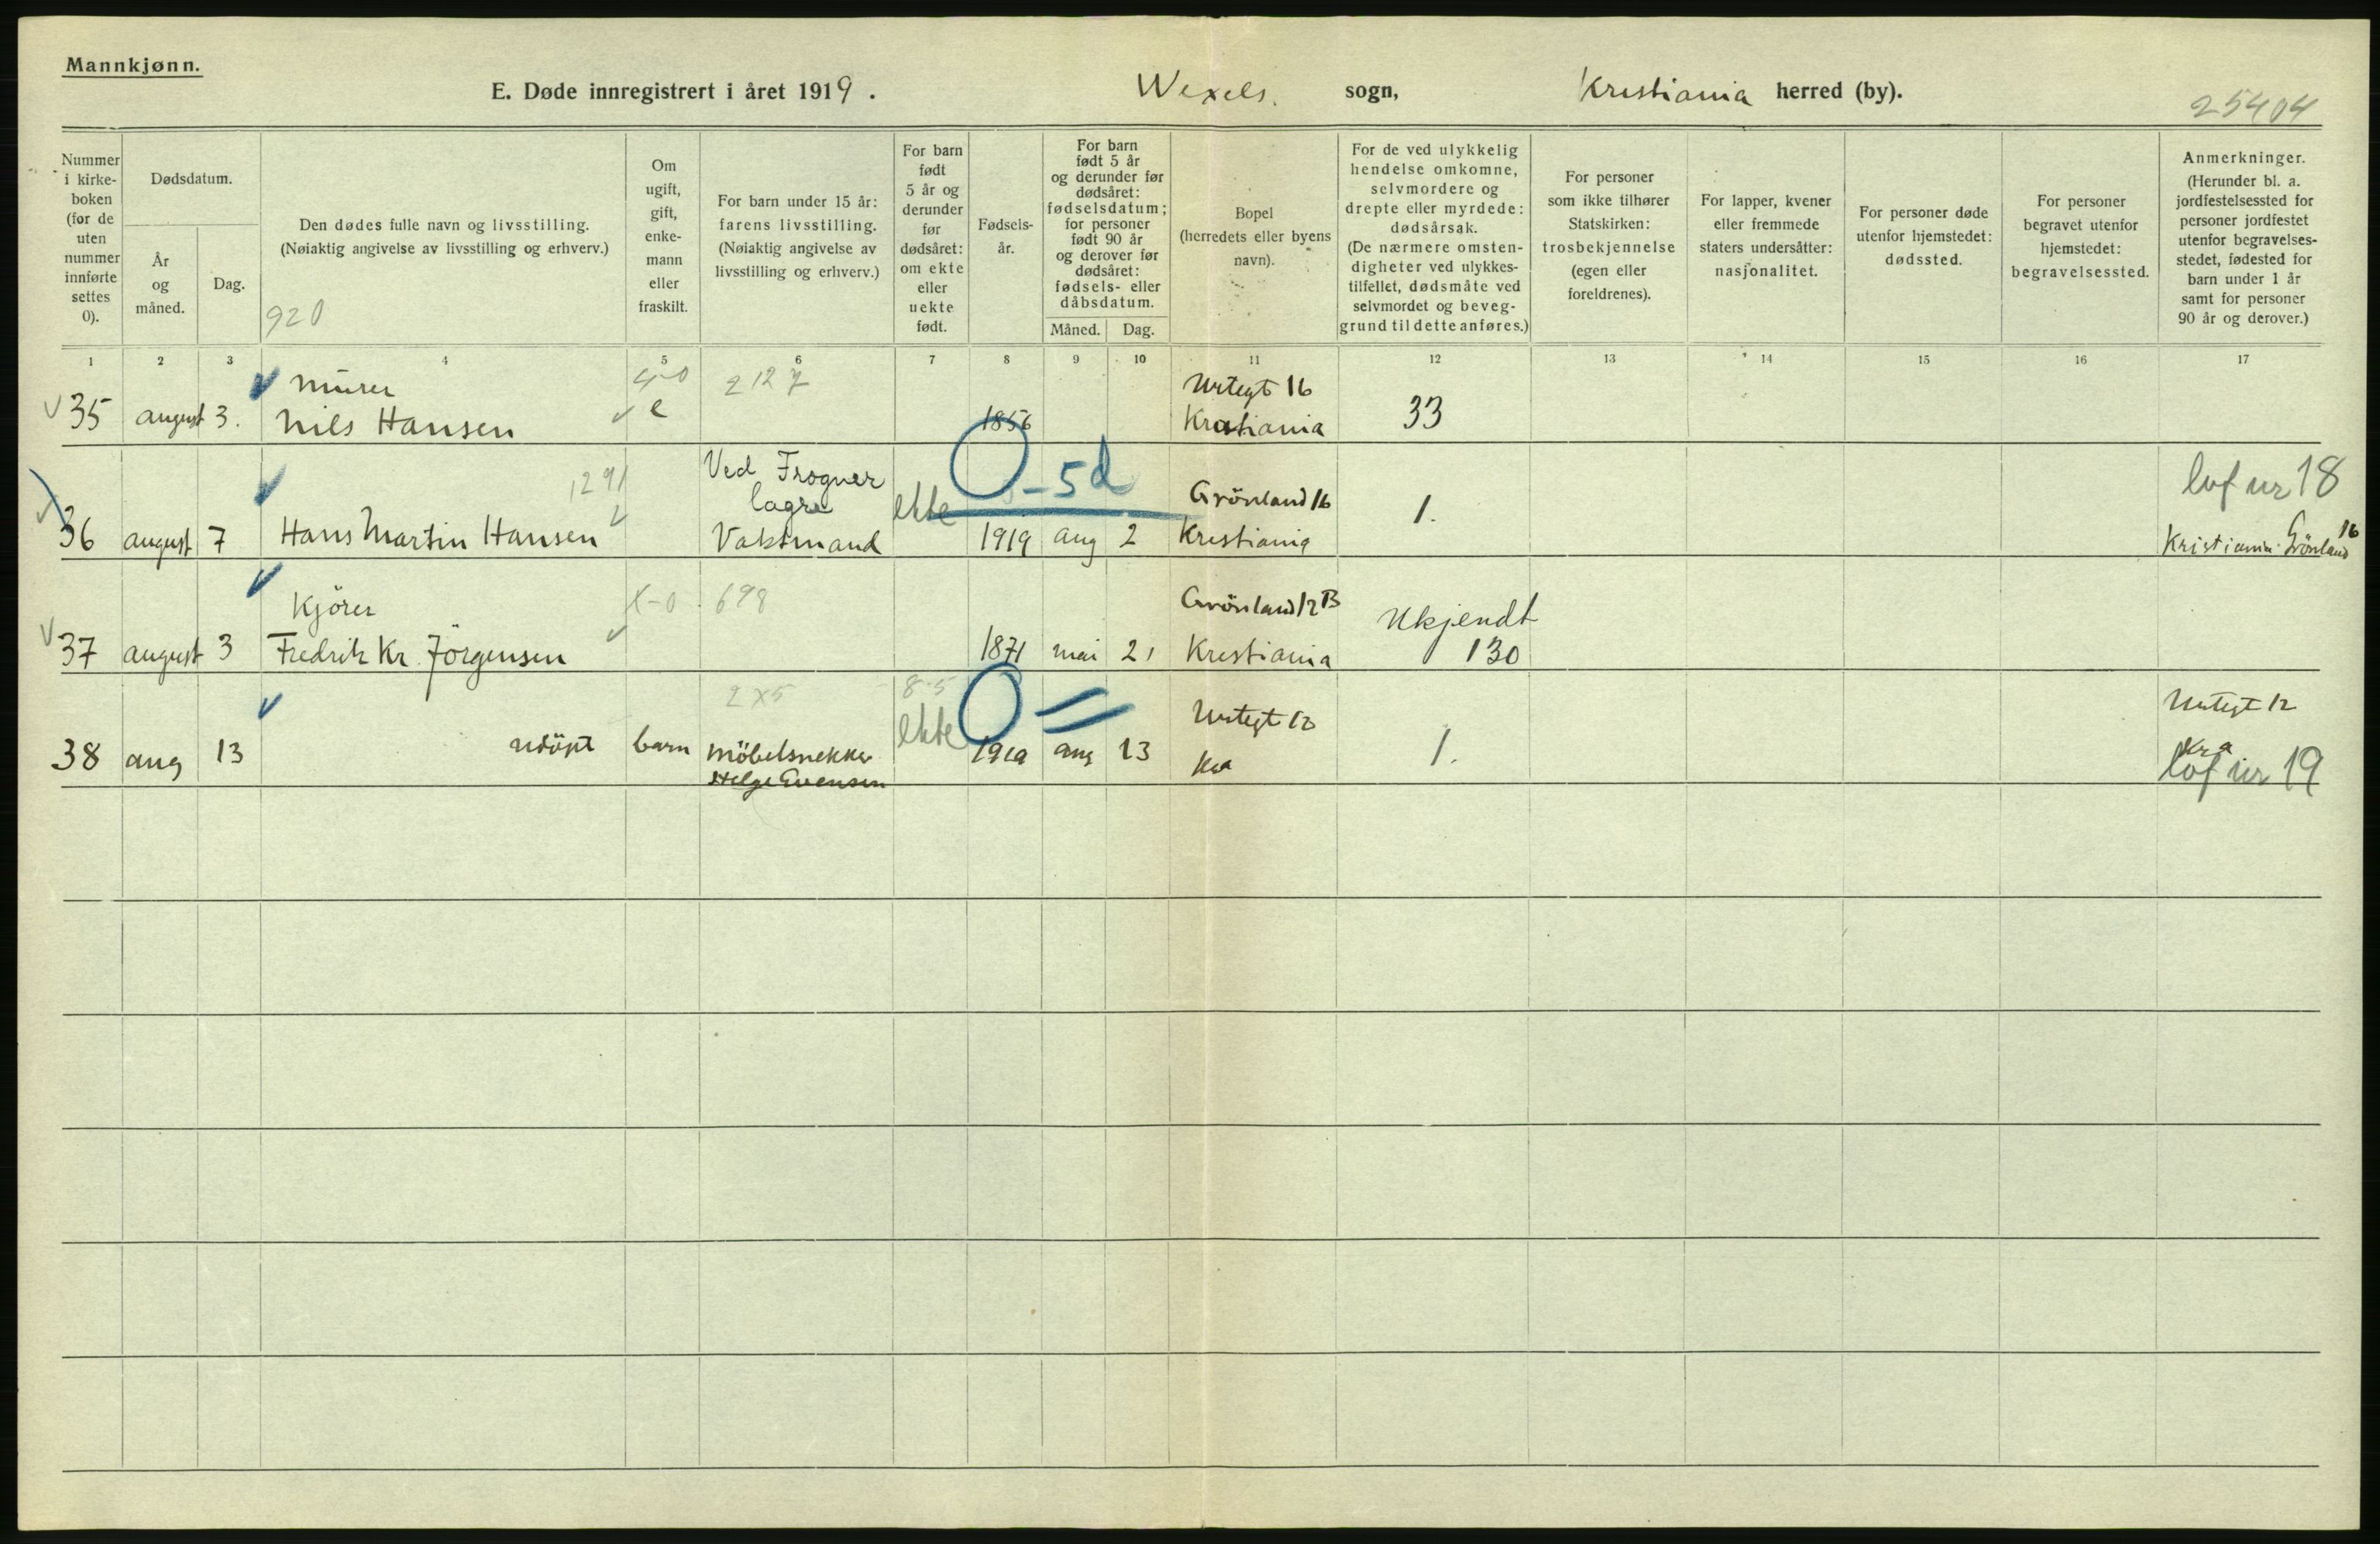 Mannkjønn.
E. Døde innregistrert i året 1919. Wexels. sogn, Kristiania herred (by).
25404
Nummer i kirke-boken (for de uten nummer innførte settes 0).
Dødsdatum.
År og måned.
Dag.
Den dødes fulle navn og livsstilling.
(Nøiaktig angivelse av livsstilling og erhverv.)
920
Om ugift, gift, enke-mann eller fraskilt.
For barn under 15 år: farens livsstilling.
(Nøiaktig angivelse av livsstilling og erhverv.)
For barn født 5 år og derunder før dødsåret: om ekte eller uekte født.
Fødsels-år.
For barn født 5 år og derunder før dødsåret: fødselsdatum; for personer født 90 år og derover før dødsåret: fødsels- eller dåbsdatum.
Måned. Dag.
Bopel (herredets eller byens navn).
For de ved ulykkelig hendelse omkomne, selvmordere og drepte eller myrdede: dødsårsak.
(De nærmere omsten-digheter ved ulykkes-tilfellet, dødsmåte ved selvmordet og beveg-grund til dette anføres.)
For personer som ikke tilhører Statskirken: trosbekjennelse (egen eller foreldrenes).
For lapper, kvener eller fremmede staters undersåtter: nasjonalitet.
For personer døde utenfor hjemstedet: dødssted.
For personer begravet utenfor hjemstedet: begravelsessted.
Anmerkninger.
(Herunder bl. a. jordfestelsessted for personer jordfestet utenfor begravelses-stedet, fødested for barn under 1 år samt for personer 90 år og derover.)
1 2 3 4 5 6 7 8 9 10 11 12 13 14 15 16 17
Murer 2127 Urtegt 16
35 august 3. Nils Hansen e 1856 Kristiania 33
1291 Ved Frogner 0-5d lof nr 18
lagre ekte Grönland 16 1.
36 august 7 Hans Martin Hansen Vaktmand 1919 aug 2 Kristiania Kristiania Grönland 16
Kjörer x-0 698 Grönland 12B Ukjendt
37 august 3 Fredrik Kr. Jörgensen 1871 mai 21 Kristiania 130
2x5 8-5 0 = Urtegt 12 Urtegt 12
38 aug 13 udöpt barn Möbelsnekker ekte 1919 aug 13 Kra 1. Kra
Helge Evensen lof nr 19